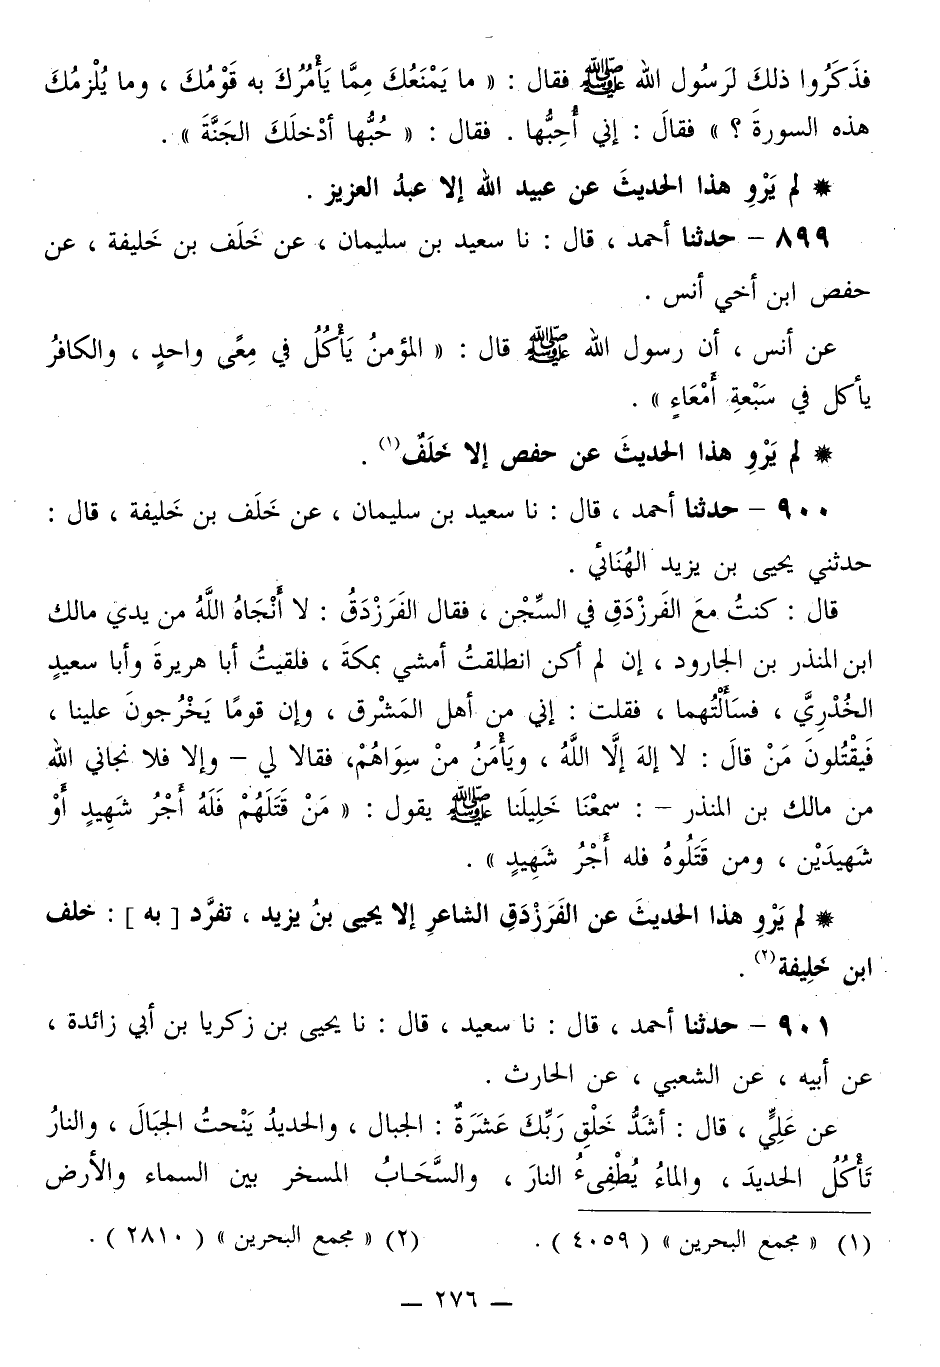 فذَكَرُوا ذلكَ لرَسُول الله ﷺ فقال : « ما يَمْنَعُكَ مِمَّا يَأْمُرُكَ به قَوْمُكَ ، وما يُلْزمُكَ
هذه السورةَ ؟ » فقالَ : إني أُحِبُّها . فقال : « حُبُّها أدْخلَكَ الجَنَّةَ » .
* لم يَرْوِ هذا الحديثَ عن عبيد الله إلا عبدُ العزيز .
٨٩٩ – حدثنا أحمد ، قال : نا سعيد بن سليمان ، عن خَلَف بن خَليفة ، عن
حفص ابن أخي أنس .
عن أنس ، أن رسول الله ﷺ قال : « المؤمنُ يَأْكُلُ في مِعًى واحدٍ ، والكافرُ
يأكل في سَبْعةِ أَمْعَاءٍ » .
* لم يَرْوِ هذا الحديثَ عن حفص إلا خَلَفٌ(١) .
٩٠٠ – حدثنا أحمد ، قال : نا سعيد بن سليمان ، عن خَلَف بن خَليفة ، قال :
حدثني يحيى بن يزيد الهُنَائي .
قال : كنتُ معَ الفَرزْدَقِ في السِّجْن ، فقال الفَرَزْدَقُ : لا أَنْجَاهُ اللَّهُ من يدي مالك
ابن المنذر بن الجارود ، إن لم أكن انطلقتُ أمشي بمكةَ ، فلقيتُ أبا هريرةَ وأبا سعيدٍ
الخُدْرِيَّ ، فسَأَلْتُهما ، فقلت : إني من أهل المَشْرق ، وإن قومًا يَخْرُجونَ علينا ،
فَيقْتُلونَ مَنْ قالَ : لا إلهَ إلَّا اللَّهُ ، ويَأْمَنُ منْ سِوَاهُمْ، فقالا لي – وإلا فلا نجاني الله
من مالك بن المنذر – : سمعْنَا خَلِيلَنا ﷺ يقول : « مَنْ قَتَلَهُمْ فَلَهُ أَجْرُ شَهِيدٍ أَوْ
شَهيدَيْن ، ومن قَتَلُوهُ فله أَجْرُ شَهِيدٍ » .
* لم يَرْوِ هذا الحديثَ عن الفَرَزْدَقِ الشاعرِ إلا يحيى بنُ يزيد ، تفرَّد [ به ] : خلف
ابن خَلِيفة(٢) .
٩٠١ – حدثنا أحمد ، قال : نا سعيد ، قال : نا يحيى بن زكريا بن أبي زائدة ،
عن أبيه ، عن الشعبي ، عن الحارث .
عن عَليٍّ ، قال : أشدُّ خَلْقِ رَبِّكَ عَشَرَةٌ : الجبال ، والحديدُ يَنْحتُ الجبَالَ ، والنارُ
تَأْكُلُ الحديدَ ، والماءُ يُطْفِىءُ النارَ ، والسَّحَابُ المسخر بين السماء والأرض
(١) « مجمع البحرين » ( ٤٠٥٩ ) . (٢) « مجمع البحرين » ( ٢٨١٠ ) .
– ٢٧٦ –